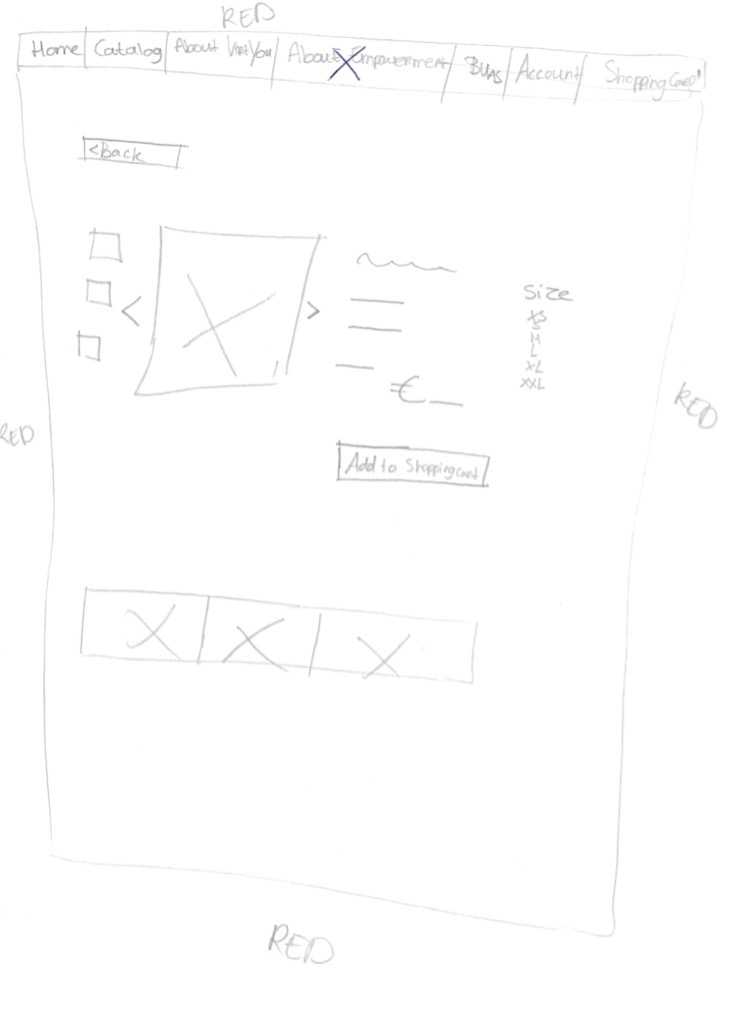 RED
Home Catalog About About Empowerment BUas Account Shopping Card
<Back
Size
XS
S
M
L
XL
XXL
€
RED
RED
Add to Shopping Card
RED